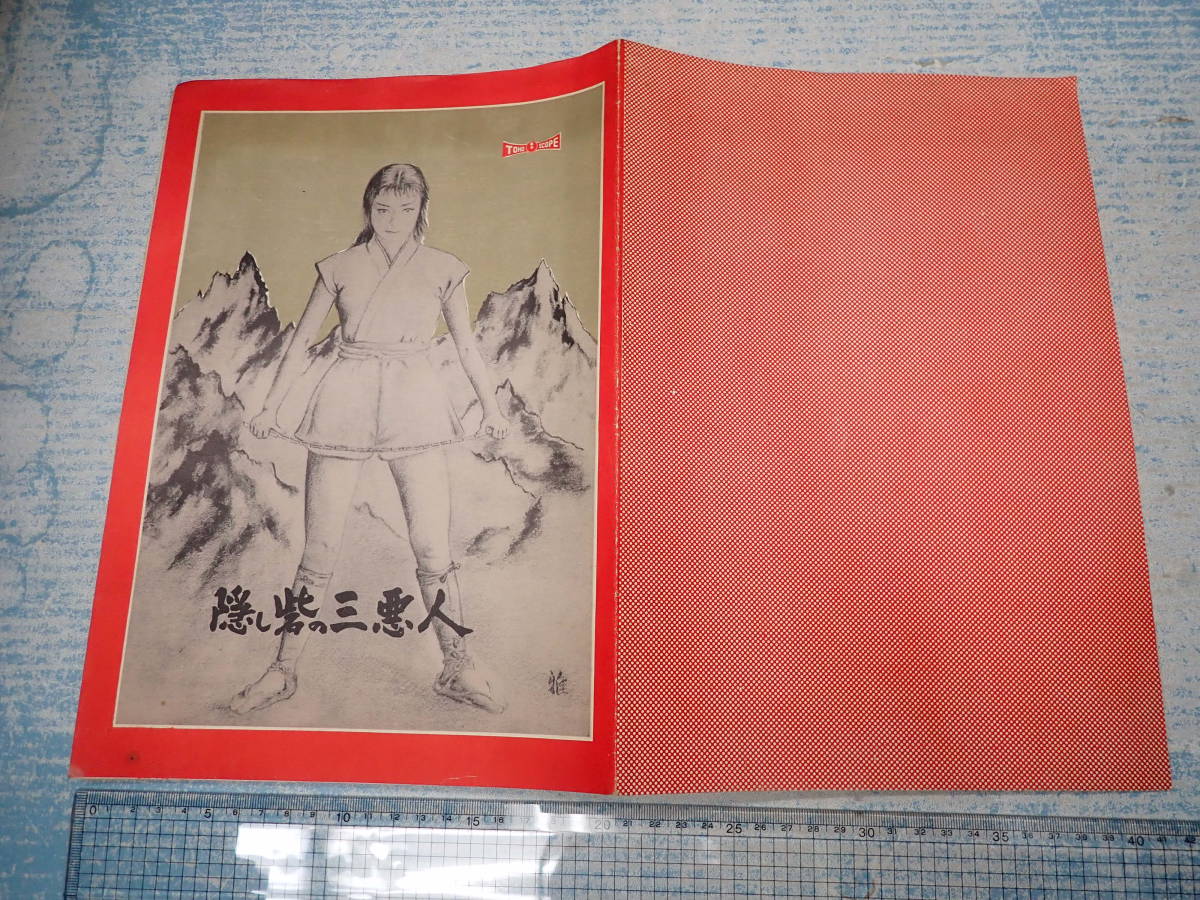 TOHO SCOPE
隠し砦の三悪人
雅
0 1 2 3 4 5 6 7 8 9 10 11 12 13 14 15 16 17 18 19 20 21 22 23 24 25 26 27 28 29 30 31 32 33 34 35 36 37 38 39 40 41 42